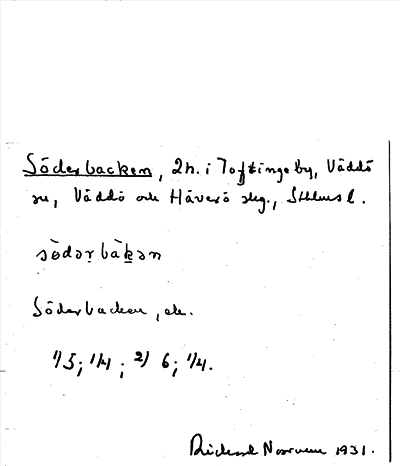 Söderbacken, 2h. i Toftingeby, Väddö
sn, Väddö och Häverö skg., Sthlms l.
sö̀dəṛbàḵən
Söderbacken, ek.
1) 5; 1/4; 2) 6; 1/4.
Richard Norrman 1931.